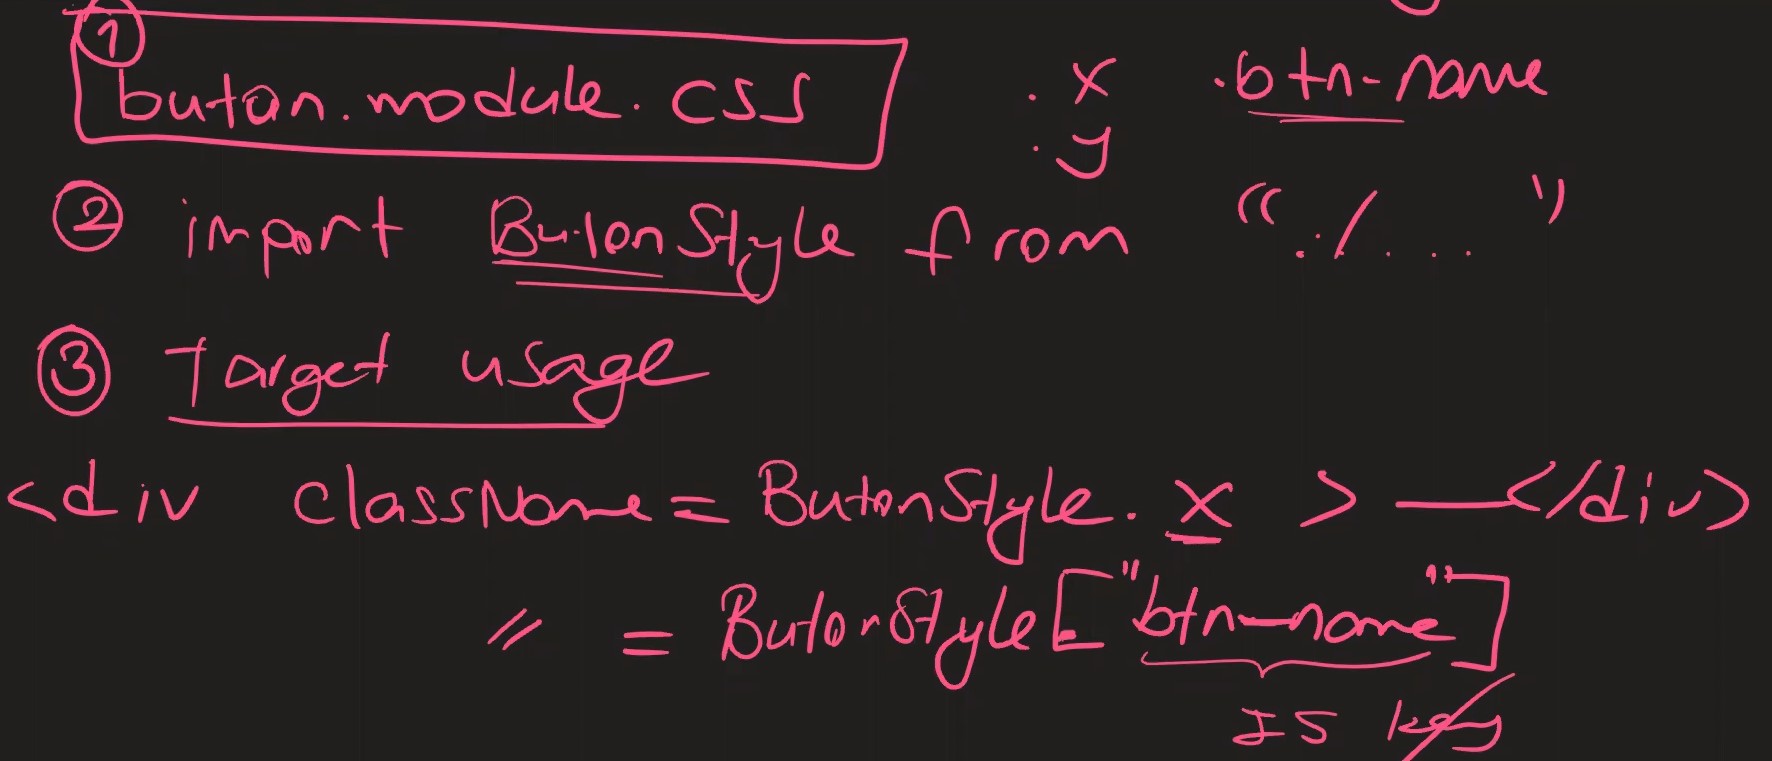 ①
buton.module.css .x .btn-name
.y
② import ButonStyle from "./..."
③ Target usage
<div className = ButonStyle.x > — </div>
〃 = ButonStyle["btn-name"]
IS key